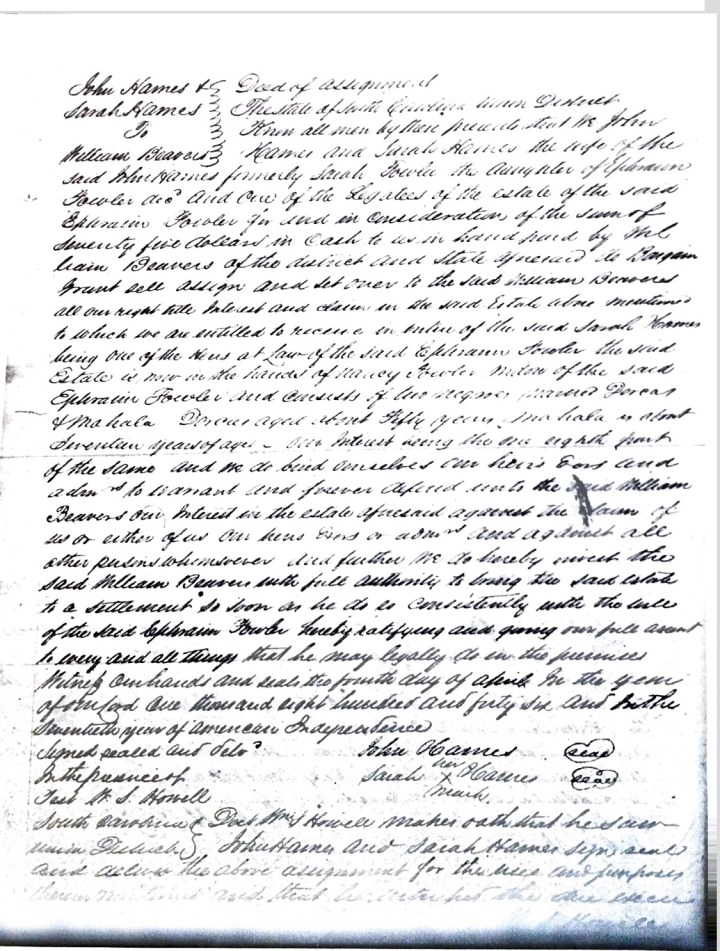 John Hames & Deed of assignment
Sarah Hames The State of South Carolina Union District
To Know all men by these presents that We John
William Beavers Hames and Sarah Hames the wife of the
said John Hames formerly Sarah Fowler the daughter of Ephraim
Fowler decd and one of the Legatees of the estate of the said
Ephraim Fowler for and in consideration of the sum of
Seventy five dollars in Cash to us in hand paid by Wil
liam Beavers of the district and State aforesaid do Bargain
Grant sell assign and set over to the said William Beavers
all our right title Interest and claim in the said Estate above mentioned
to which we are entitled to receive in of the said Sarah Hames
being one of the Heirs at Law of the said Ephraim Fowler the said
Estate is now in the hands of Nancy Fowler widow of the said
Ephraim Fowler and consists of two negroes named Dorcas
& Mahala Dorcas aged about Fifty years, Mahala is about
Seventeen years of age – our Interest being the one eighth part
of the same and we do bind ourselves our heirs Exors and
admrs to warrant and forever defend unto the said William
Beavers our Interest in the estate aforesaid against the claim of
us or either of us our heirs Exors or admrs and against all
other persons whomsoever and further we do hereby invest the
said William Beavers with full authority to bring the said estate
to a settlement so soon as he do so consistently with the will
of the said Ephraim Fowler hereby ratifying and giving our full assent
to every and all things that he may legally do in the premises
Witness our hands and seals the fourth day of April In the year
of our Lord One thousand eight hundred and forty six and In the
Seventieth year of American Independence
Signed sealed and deld John Hames (seal)
In the presence of Sarah her X mark Hames (seal)
Test W. S. Howell
South Carolina Doct Wm S Howell makes oath that he saw
Union District John Hames and Sarah Hames sign seal
and deliver the above assignment for the uses and purposes
therein mentioned and that he witnessed the due execu